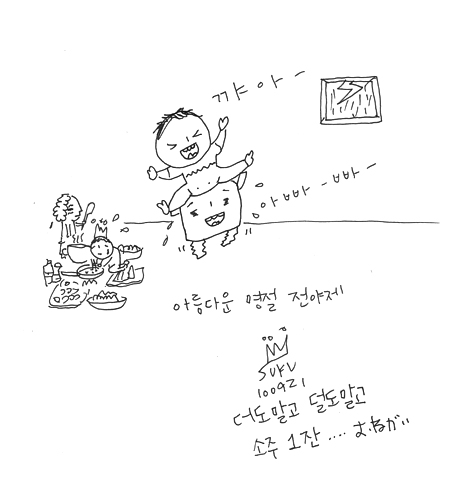 꺄 아 ~
아빠빠 - 빠빠 ~
아름다운 명절 전야제
SUKU
100921
더도말고 덜도말고
소주 1잔 .... おねがい